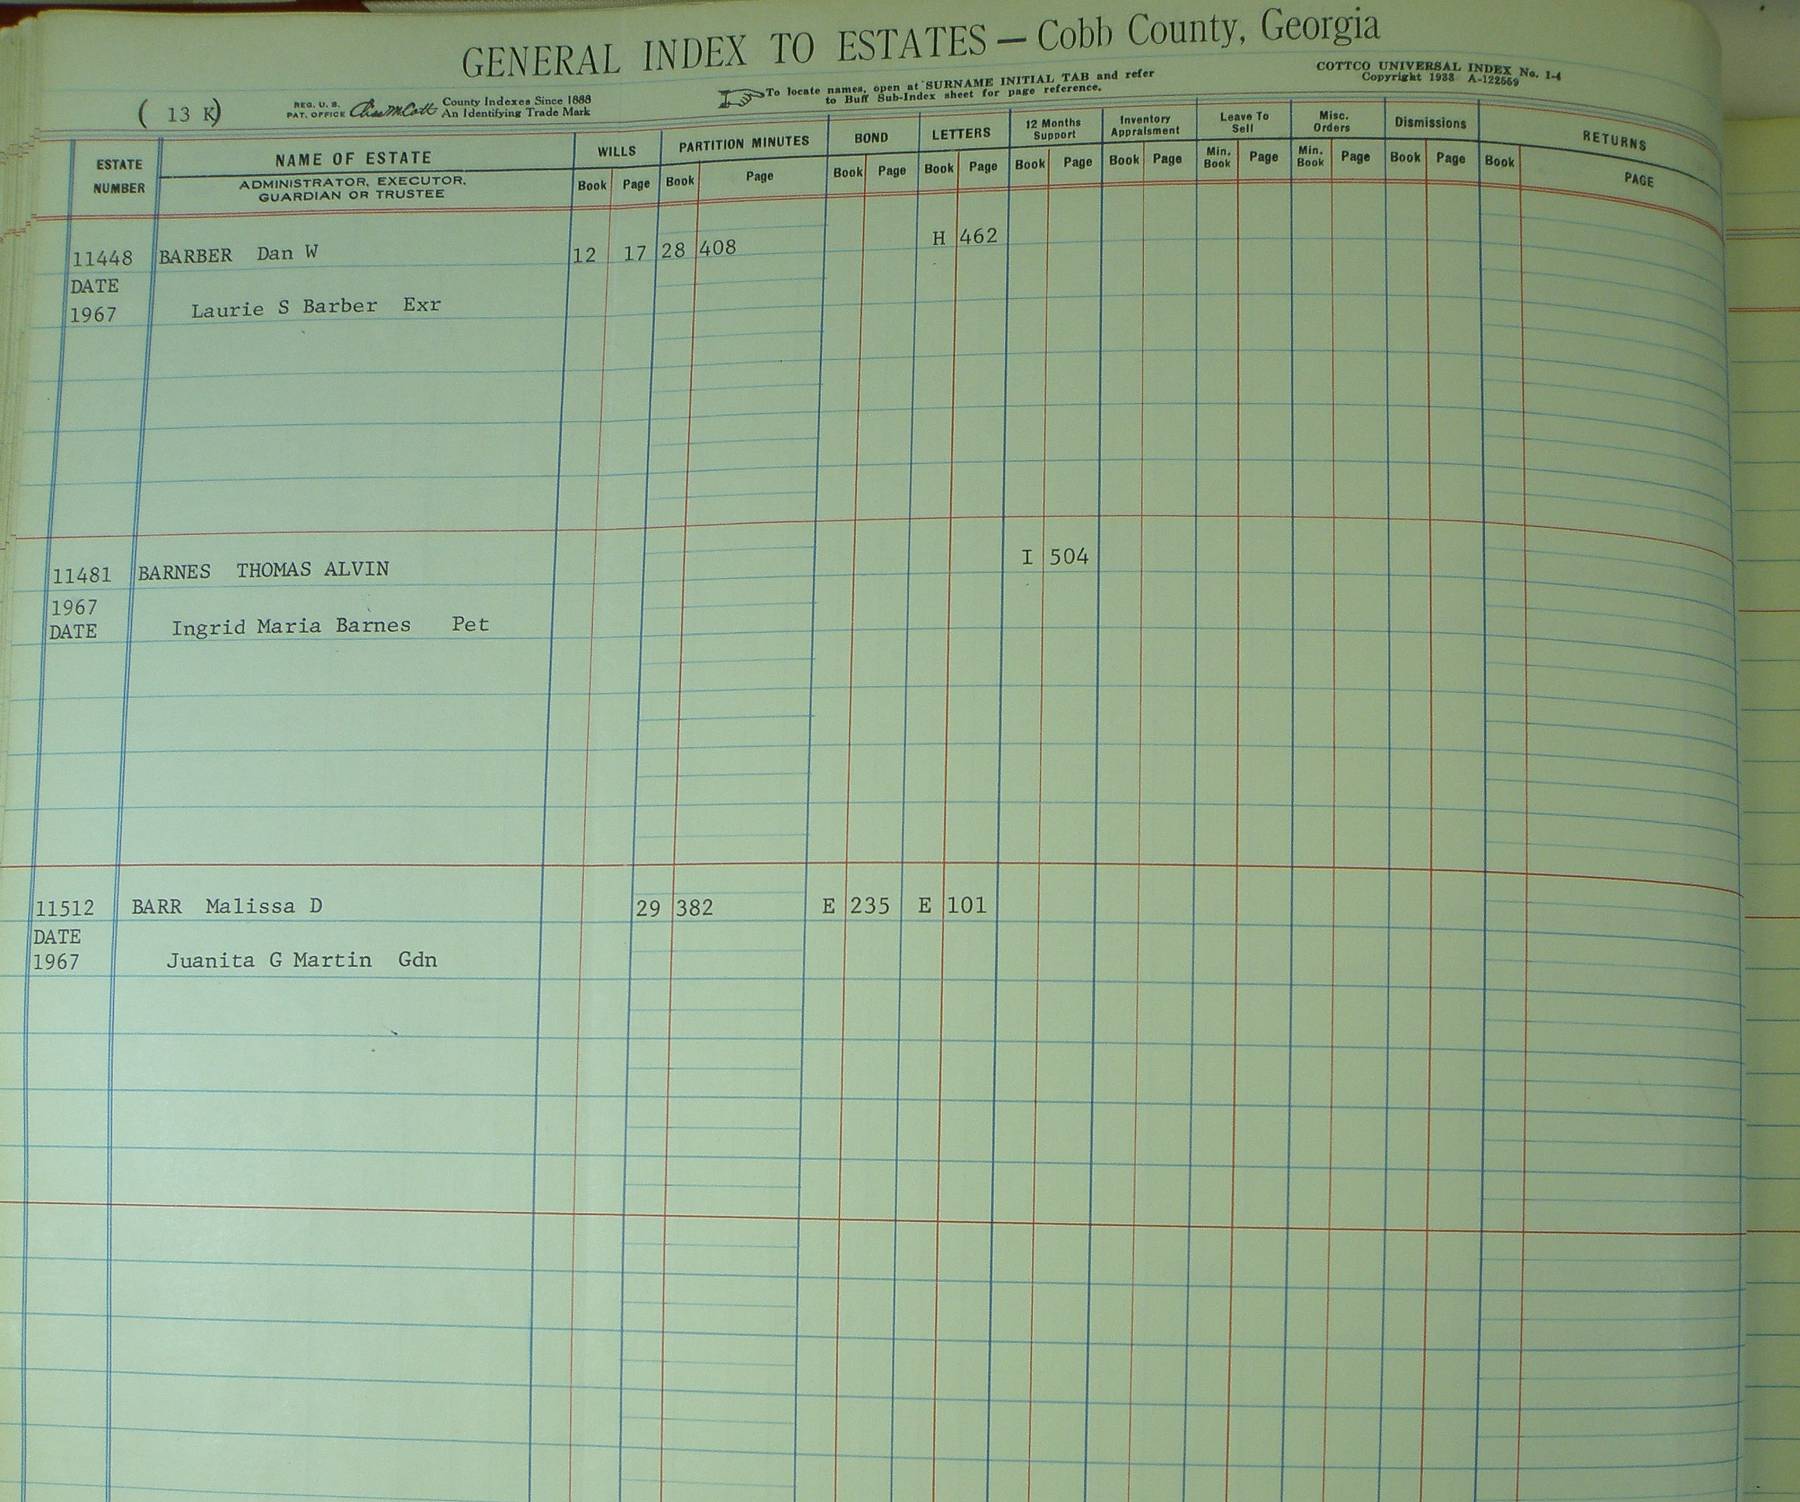 GENERAL INDEX TO ESTATES — Cobb County, Georgia
( 13 K)
REG. U. S. PAT. OFFICE County Indexes Since 1888 An Identifying Trade Mark
To locate names, open at SURNAME INITIAL TAB and refer
to Buff Sub-Index sheet for page reference.
COTTCO UNIVERSAL INDEX No. 1-4
Copyright 1933 A-122559
ESTATE NUMBER
NAME OF ESTATE
ADMINISTRATOR, EXECUTOR,
GUARDIAN OR TRUSTEE
WILLS PARTITION MINUTES BOND LETTERS 12 Months Support Inventory Appraisment Leave To Sell Misc. Orders Dismissions RETURNS
Book Page Book Page Book Page Book Page Book Page Book Page Min. Book Page Min. Book Page Book Page Book PAGE
11448 BARBER Dan W 12 17 28 408 H 462
DATE
1967 Laurie S Barber Exr
11481 BARNES THOMAS ALVIN I 504
1967
DATE Ingrid Maria Barnes Pet
11512 BARR Malissa D 29 382 E 235 E 101
DATE
1967 Juanita G Martin Gdn